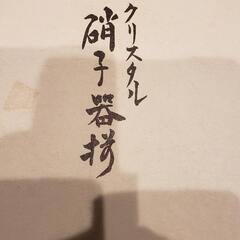 クリスタル
硝子器揃